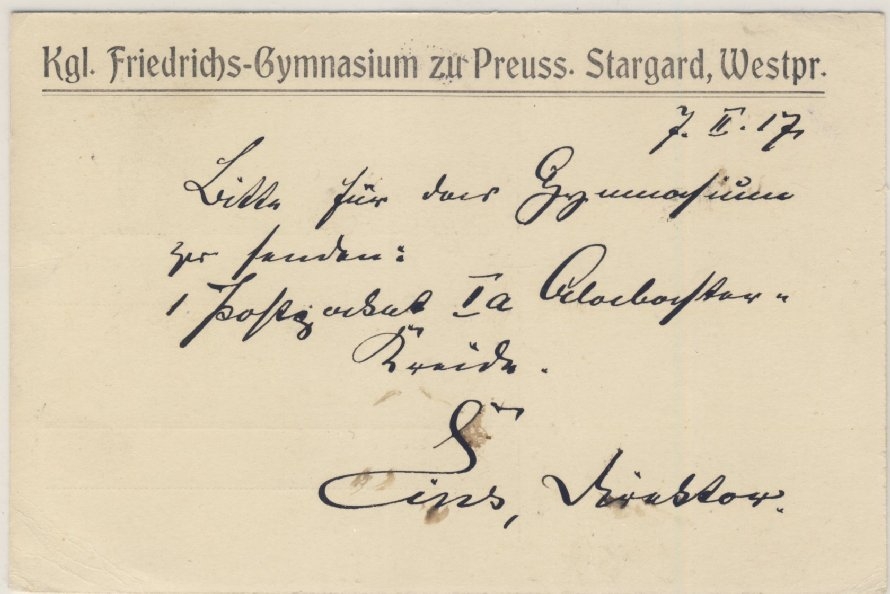 Kgl. Friedrichs-Gymnasium zu Preuss. Stargard, Westpr.
7. II. 17.
Bitte für das Gymnasium
zu senden:
1 Postpacket Ia Alabaster-
Kreide.
Direktor.